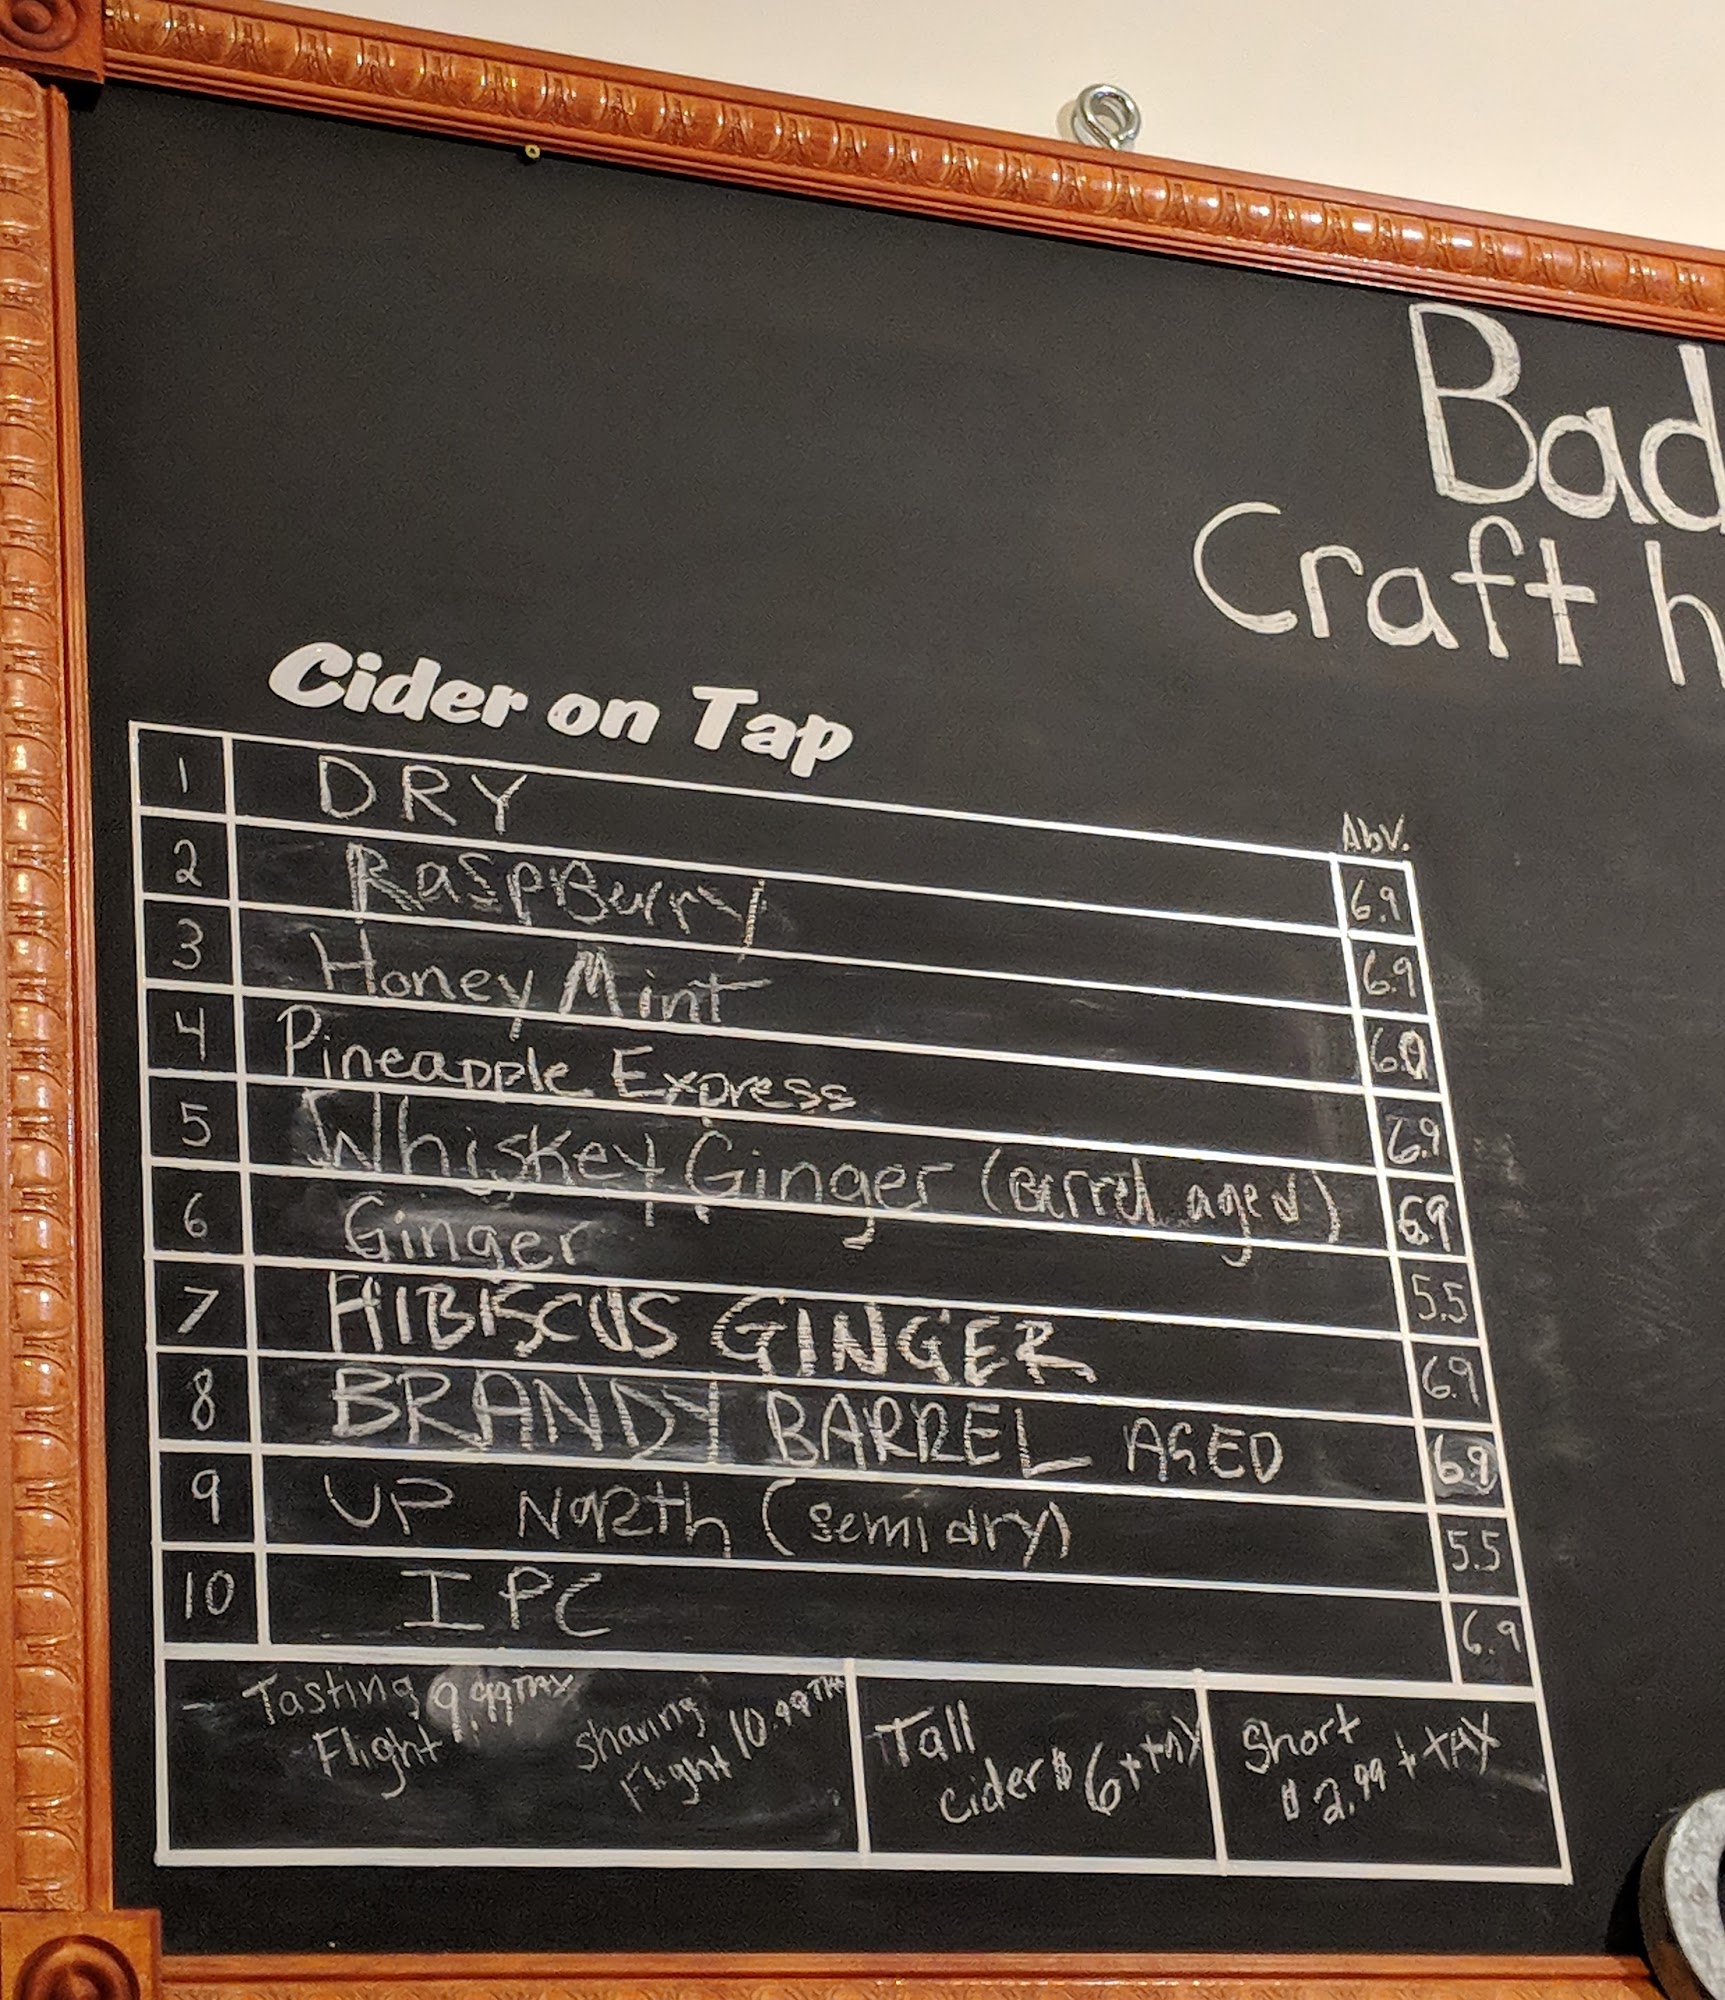 Bad
Craft h
Cider on Tap
Abv.
1 DRY 6.9
2 RaspBerry 6.9
3 Honey Mint 6.0
4 Pineapple Express 6.9
5 Whiskey Ginger (Barrel aged) 6.9
6 Ginger 5.5
7 HIBISCUS GINGER 6.9
8 BRANDY BARREL AGED 6.9
9 UP NORTh (semi dry) 5.5
10 IPC 6.9
Tasting 9.99 TAX
Flight
Sharing
Flight 10.99 TAX
Tall
cider $ 6 + tax
Short
$ 2.99 + TAX